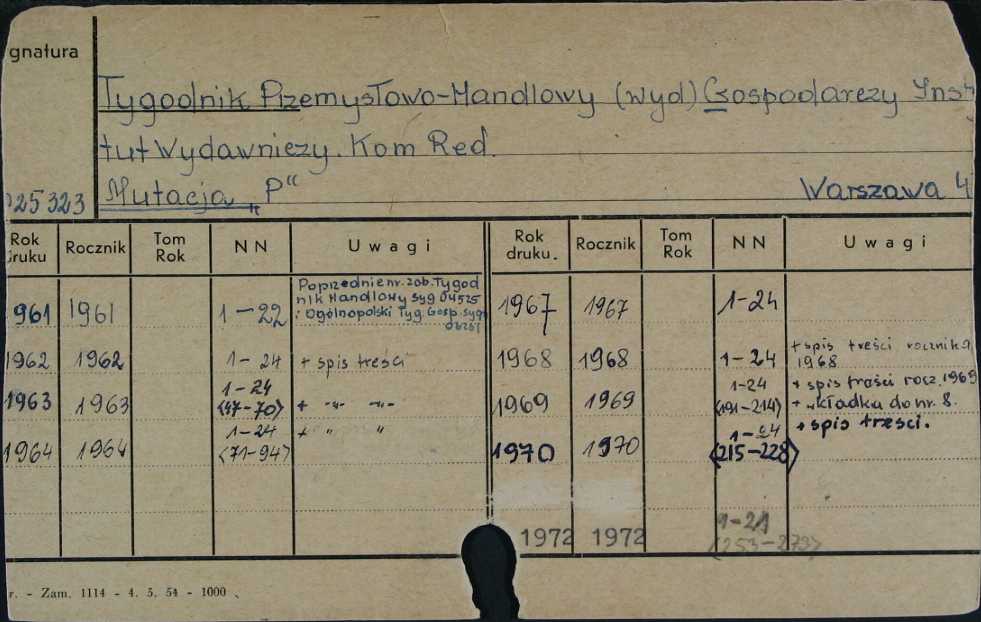 gnatura
Tygodnik Przemysłowo-Handlowy (wyd) Gospodarczy Insty
tut Wydawniczy. Kom Red.
Mutacja „P“
Warszawa 4
25323
Rok druku Rocznik Tom Rok NN Uwagi Rok druku. Rocznik Tom Rok NN Uwagi
961 1961 1-22 Poprzednie nr. zob. Tygod
nik Handlowy syg 04525
i Ogólnopolski Tyg. Gosp. syg
1967 1967 1-24
1962 1962 1-24 + spis treści
1968 1968 1-24 + spis treści rocznika
1968
1963 1963 1-24
<47-70> + -„- -„-
1969 1969 1-24
<191-214> + spis treści rocz. 1969
+ wkładka do nr. 8.
1964 1964 1-24
<71-94> + „ „
1970 1970 1-24
<215-228> + spis treści.
1972 1972 1-21
<253-273>
r. - Zam. 1114 - 4. 5. 54 - 1000